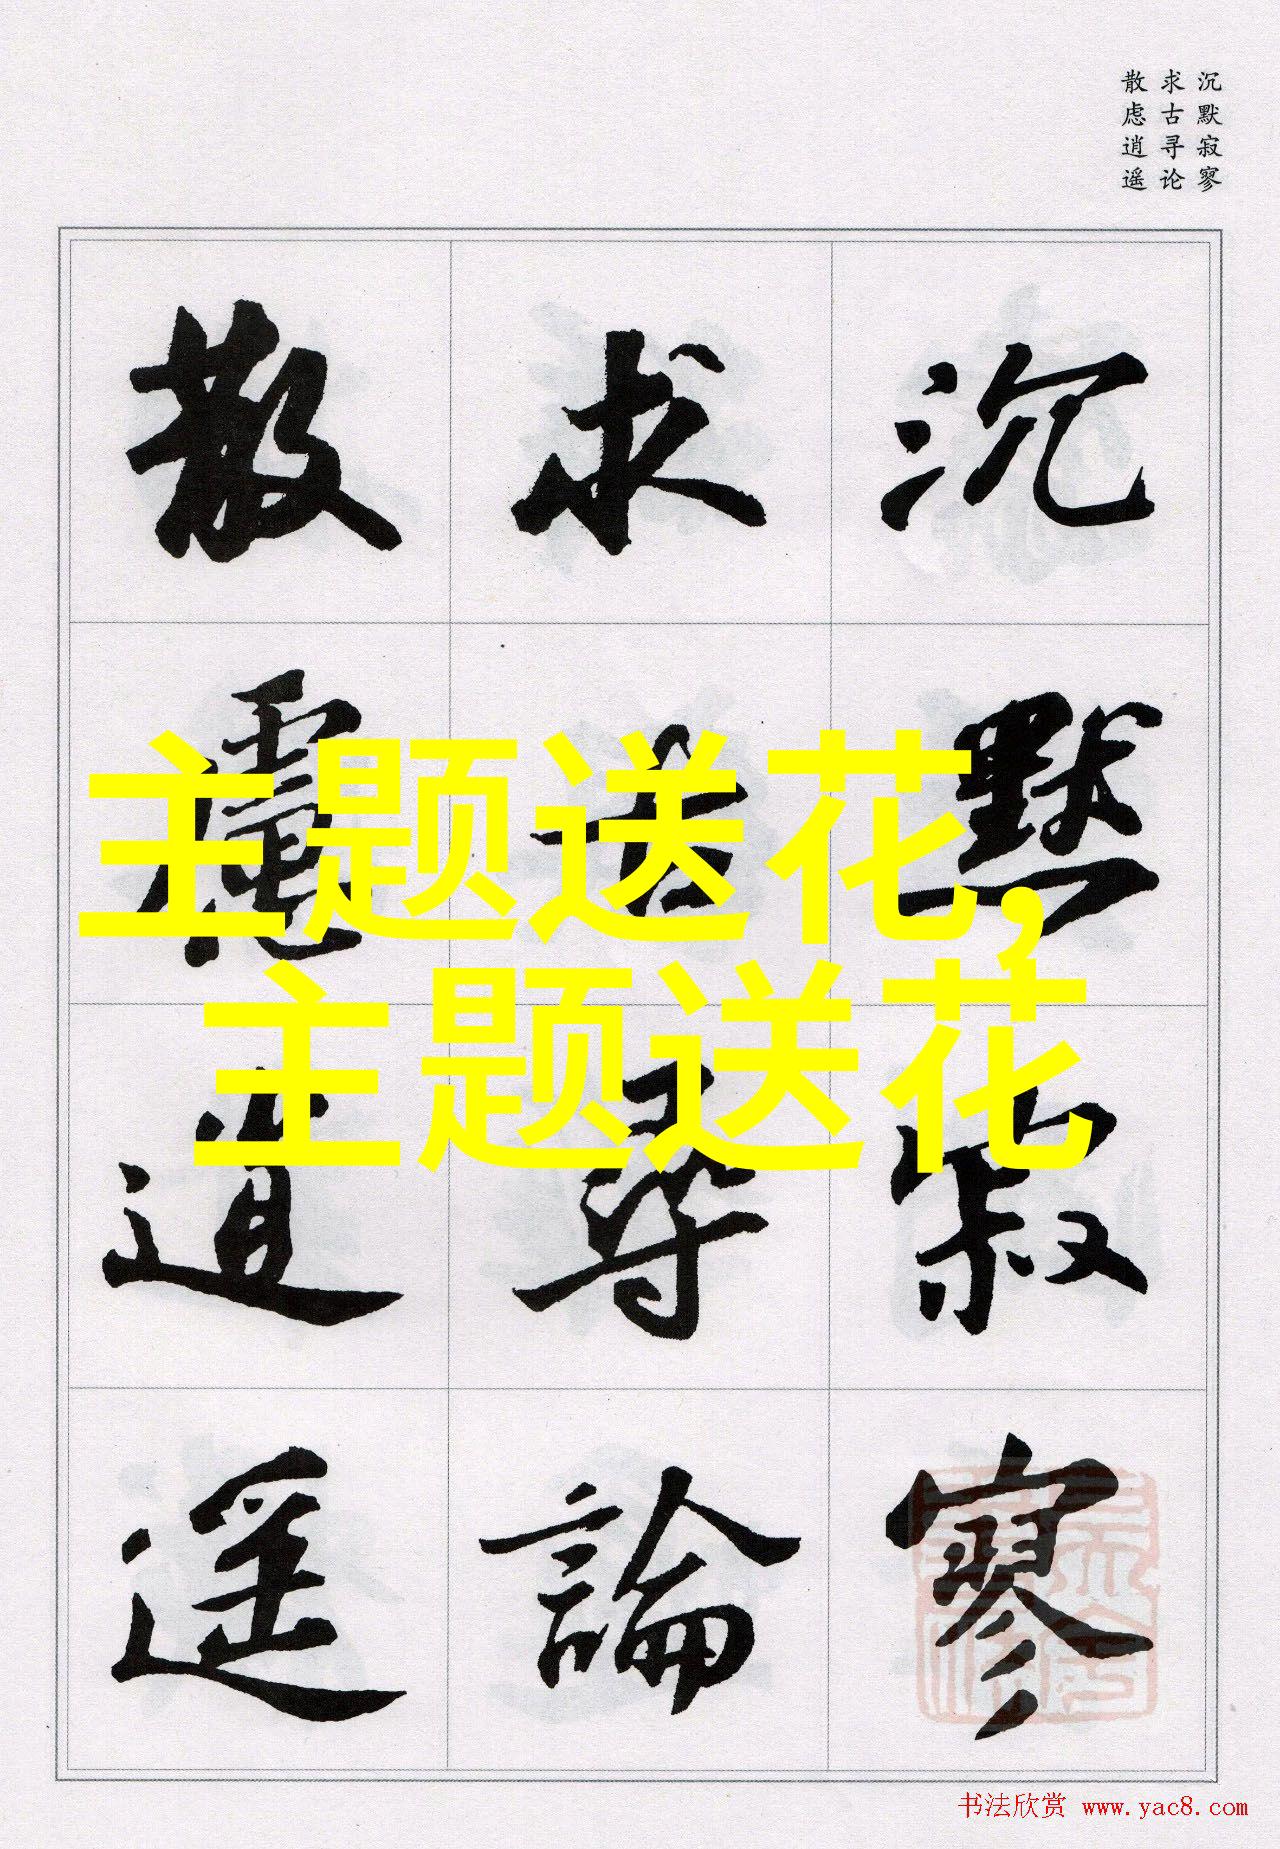 沉默寂寥
求古寻论
散虑逍遥
沉默寂寥
求古尋論
散慮逍遥
主题送花,
主题送花
书法欣赏 www.yac8.com